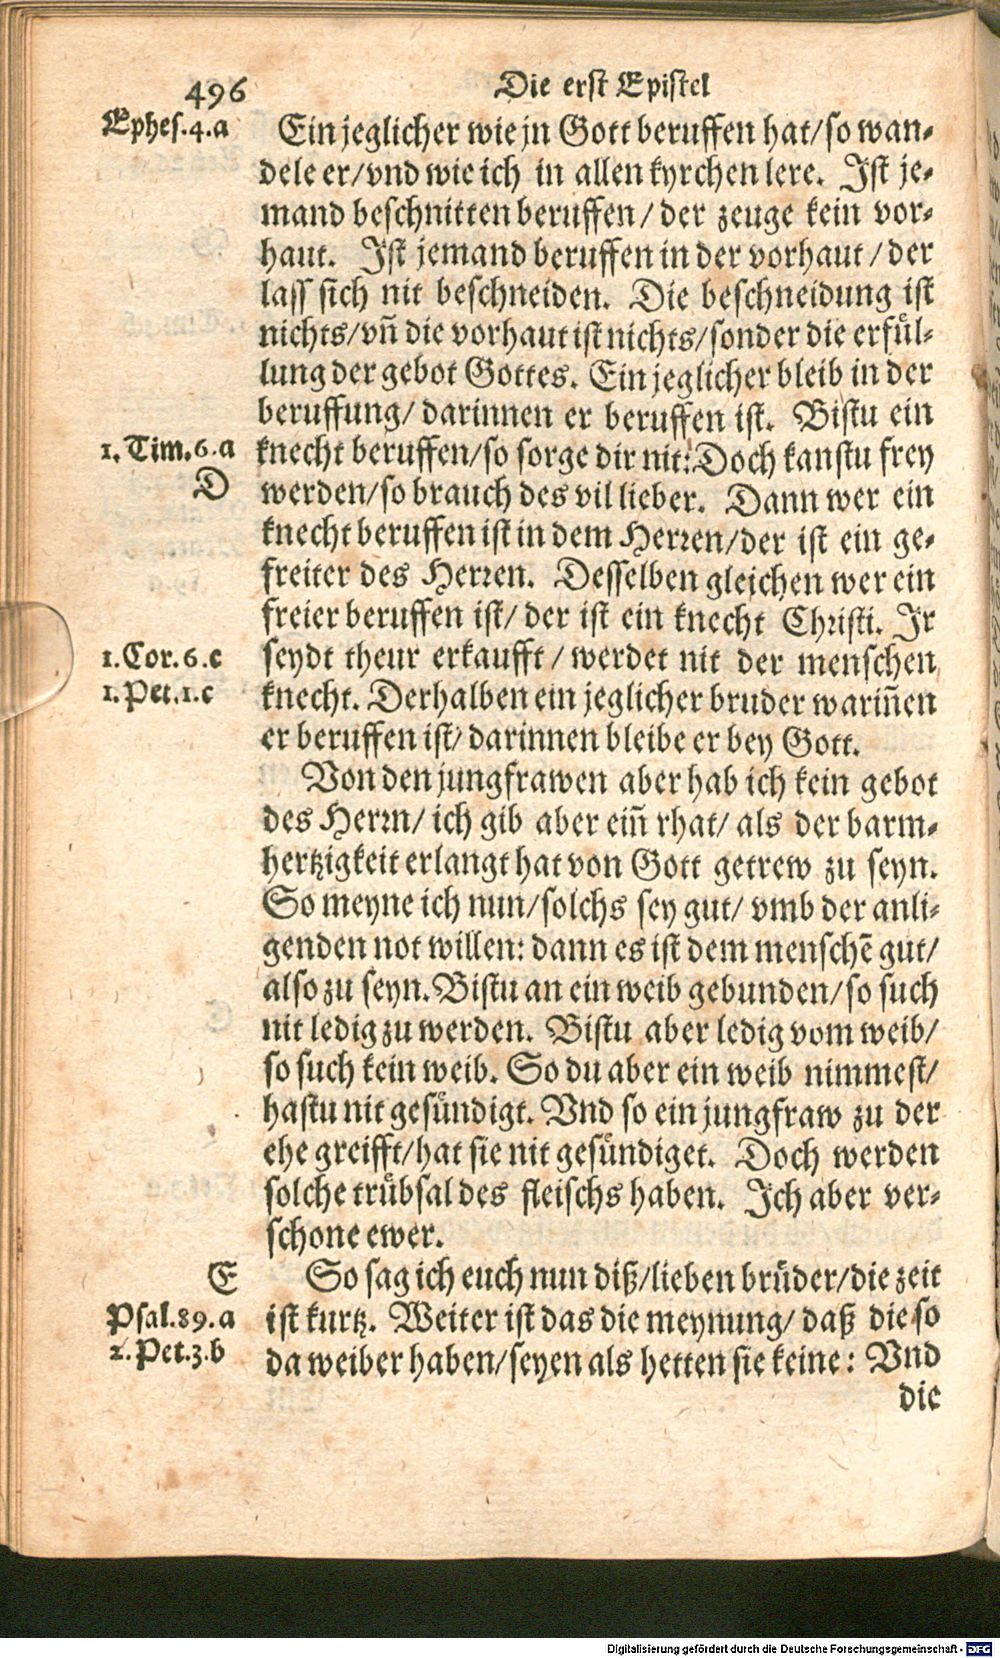 496 Die erst Epistel
Ephes.4.a Ein jeglicher wie jn Gott beruffen hat/so wan-
dele er/vnd wie ich in allen kyrchen lere. Ist je-
mand beschnitten beruffen/der zeuge kein vor-
haut. Ist jemand beruffen in der vorhaut/der
lass sich nit beschneiden. Die beschneidung ist
nichts/vñ die vorhaut ist nichts/sonder die erfül-
lung der gebot Gottes. Ein jeglicher bleib in der
beruffung/darinnen er beruffen ist. Bistu ein
1.Tim.6.a knecht beruffen/so sorge dir nit: Doch kanstu frey
D werden/so brauch des vil lieber. Dann wer ein
knecht beruffen ist in dem Herren/der ist ein ge-
freiter des Herren. Desselben gleichen wer ein
freier beruffen ist/der ist ein knecht Christi. Ir
1.Cor.6.c seydt theur erkaufft/werdet nit der menschen
1.Pet.1.c knecht. Derhalben ein jeglicher bruder wariñen
er beruffen ist/darinnen bleibe er bey Gott.
Von den jungfrawen aber hab ich kein gebot
des Herrn/ich gib aber eiñ rhat/als der barm-
hertzigkeit erlangt hat von Gott getrew zu seyn.
So meyne ich nun/solchs sey gut/vmb der anli-
genden not willen: dann es ist dem menschē gut/
also zu seyn. Bistu an ein weib gebunden/so such
nit ledig zu werden. Bistu aber ledig vom weib/
so such kein weib. So du aber ein weib nimmest/
hastu nit gesündigt. Vnd so ein jungfraw zu der
ehe greifft/hat sie nit gesündiget. Doch werden
solche trübsal des fleischs haben. Ich aber ver-
schone ewer.
E So sag ich euch nun diß/lieben brüder/die zeit
Psal.89.a ist kurtz. Weiter ist das die meynung/daß die so
2.Pet.3.b da weiber haben/seyen als hetten sie keine: Vnd
die
Digitalisierung gefördert durch die Deutsche Forschungsgemeinschaft - DFG